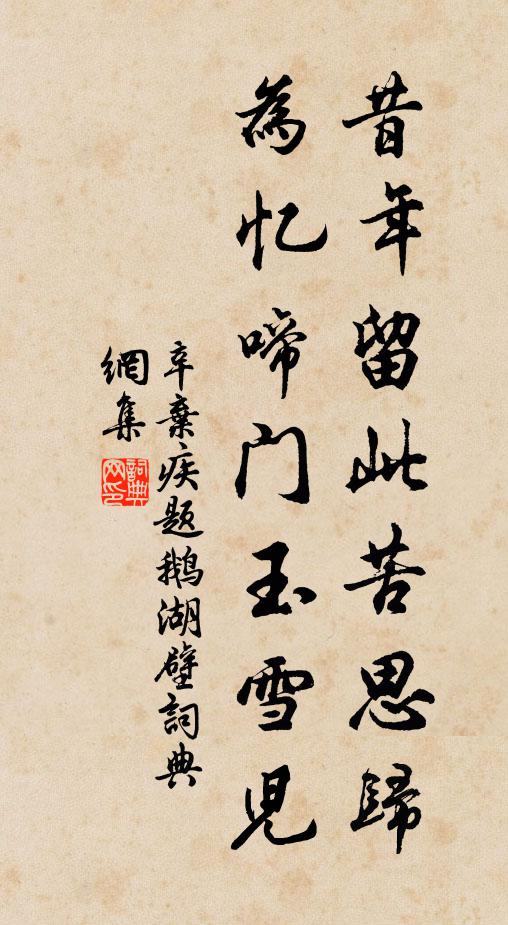 昔年留此苦思歸
為忆啼门玉雪児
辛棄疾题鵝湖壁詞典
網集
詞典
网印